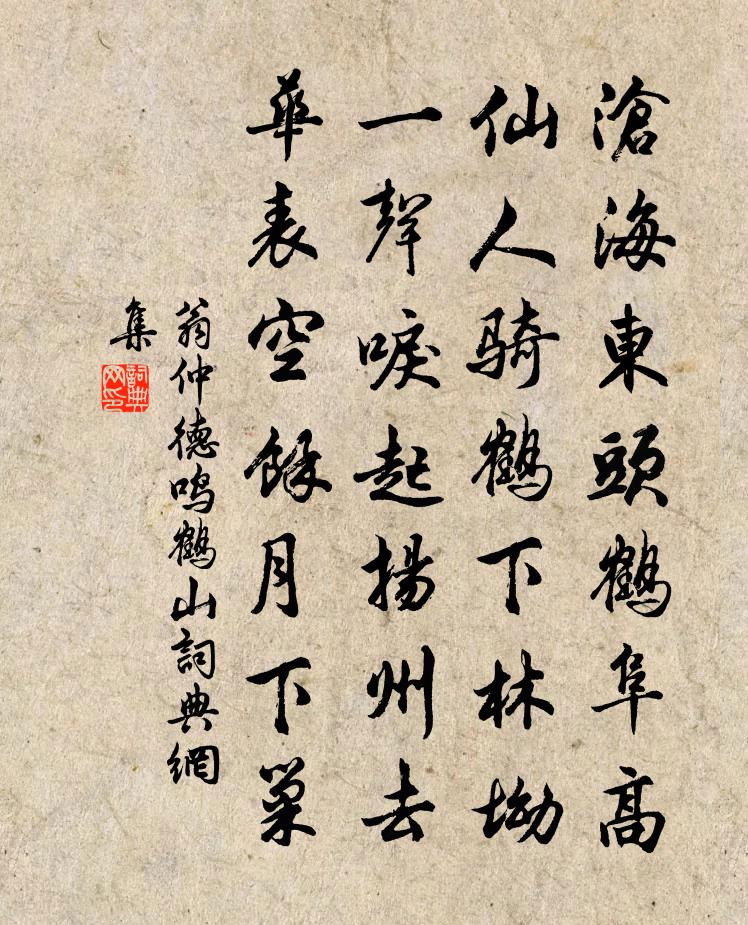 滄海東頭鶴阜高
仙人騎鶴下林坳
一聲唳起揚州去
華表空餘月下巢
翁仲德鳴鶴山詞典網
集
詞典
网印